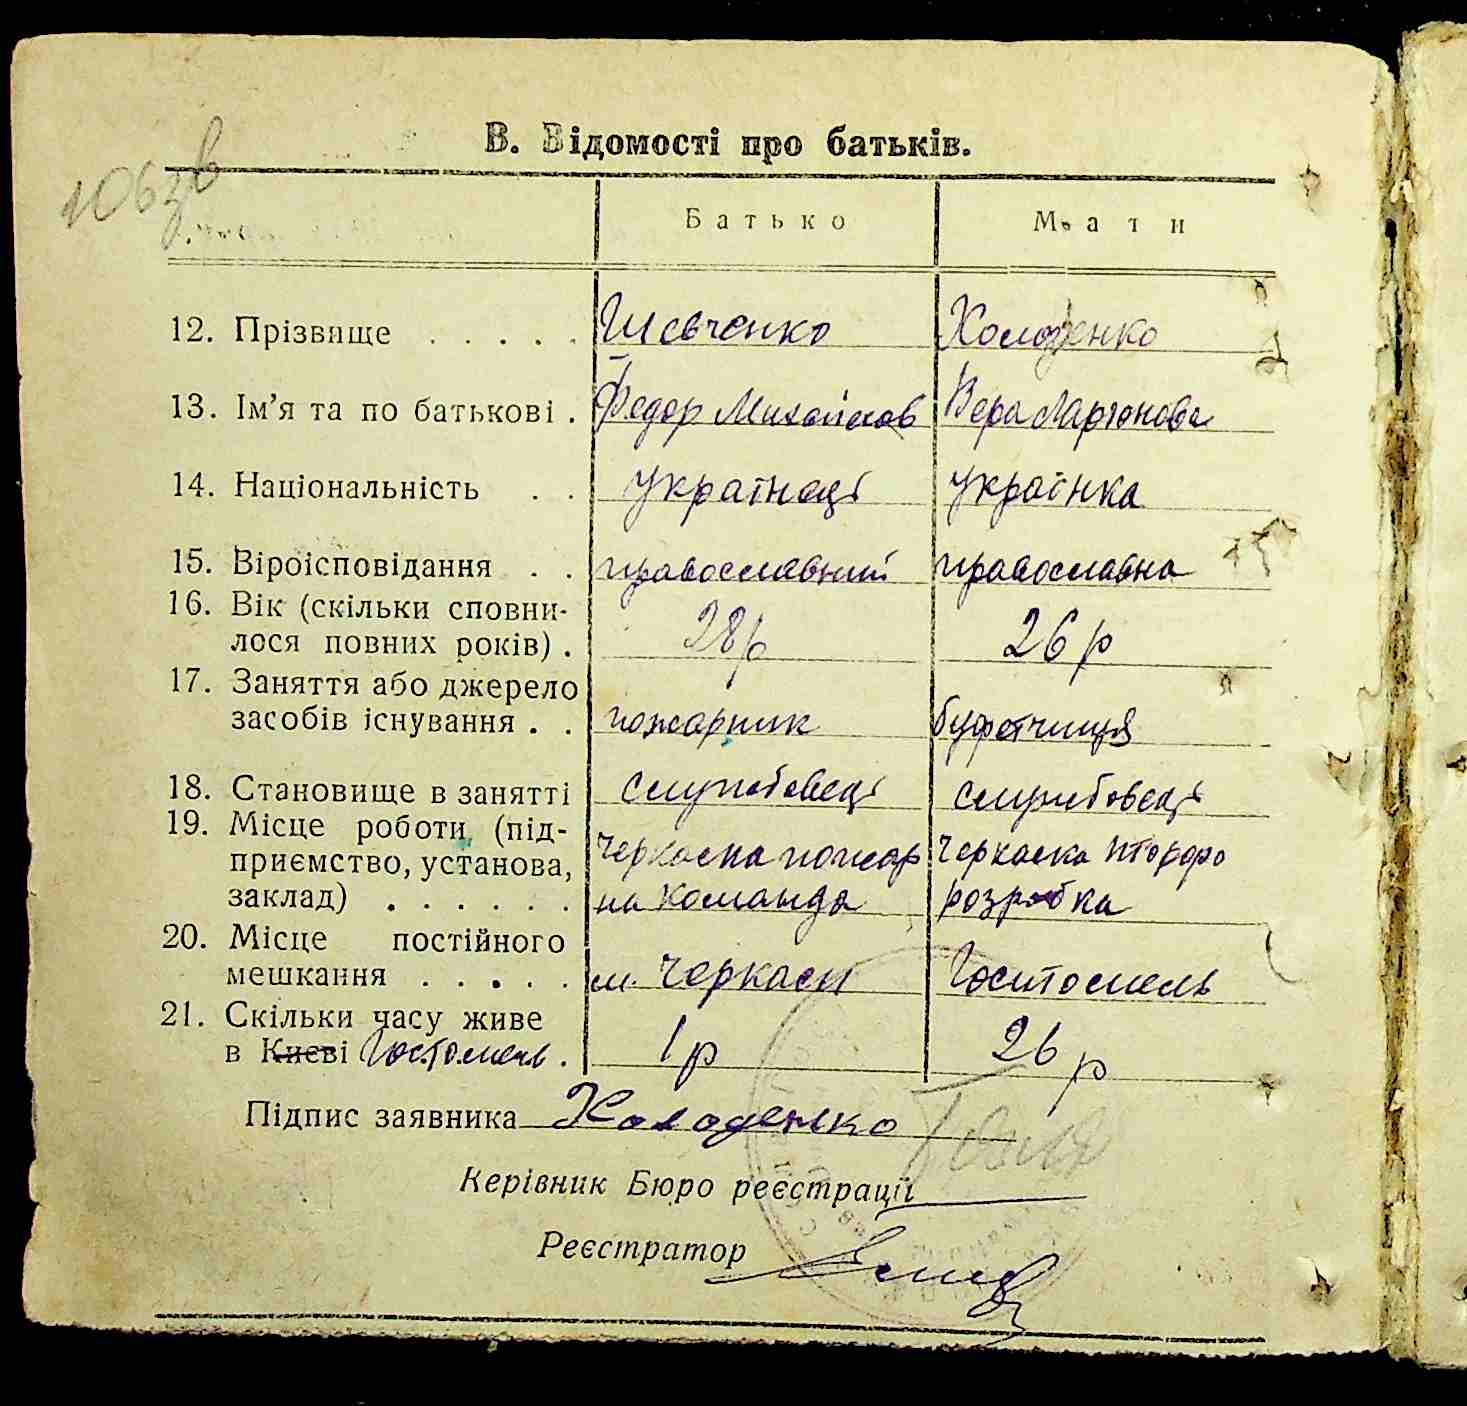 106зв
В. Відомості про батьків.
Батько Мати
12. Прізвище . . . . . Шевченко Холоденко
13. Ім’я та по батькові . Федор Михайлов Вера Ларионовна
14. Національність . . українець українка
15. Віроісповідання . . православний православна
16. Вік (скільки сповни-
лося повних років) . 28 р 26 р
17. Заняття або джерело
засобів існування . . пожарник буфетчиця
18. Становище в занятті службовець службовець
19. Місце роботи (під-
приємство, установа, Черкасна пожар Черкаска
заклад) . . . . . . на команда розробка
20. Місце постійного
мешкання . . . . . м. Черкаси Гостомель
21. Скільки часу живе
в Києві Гостомель . 1 р 26 р
Підпис заявника Холоденко
Керівник Бюро реєстрації
Реєстратор